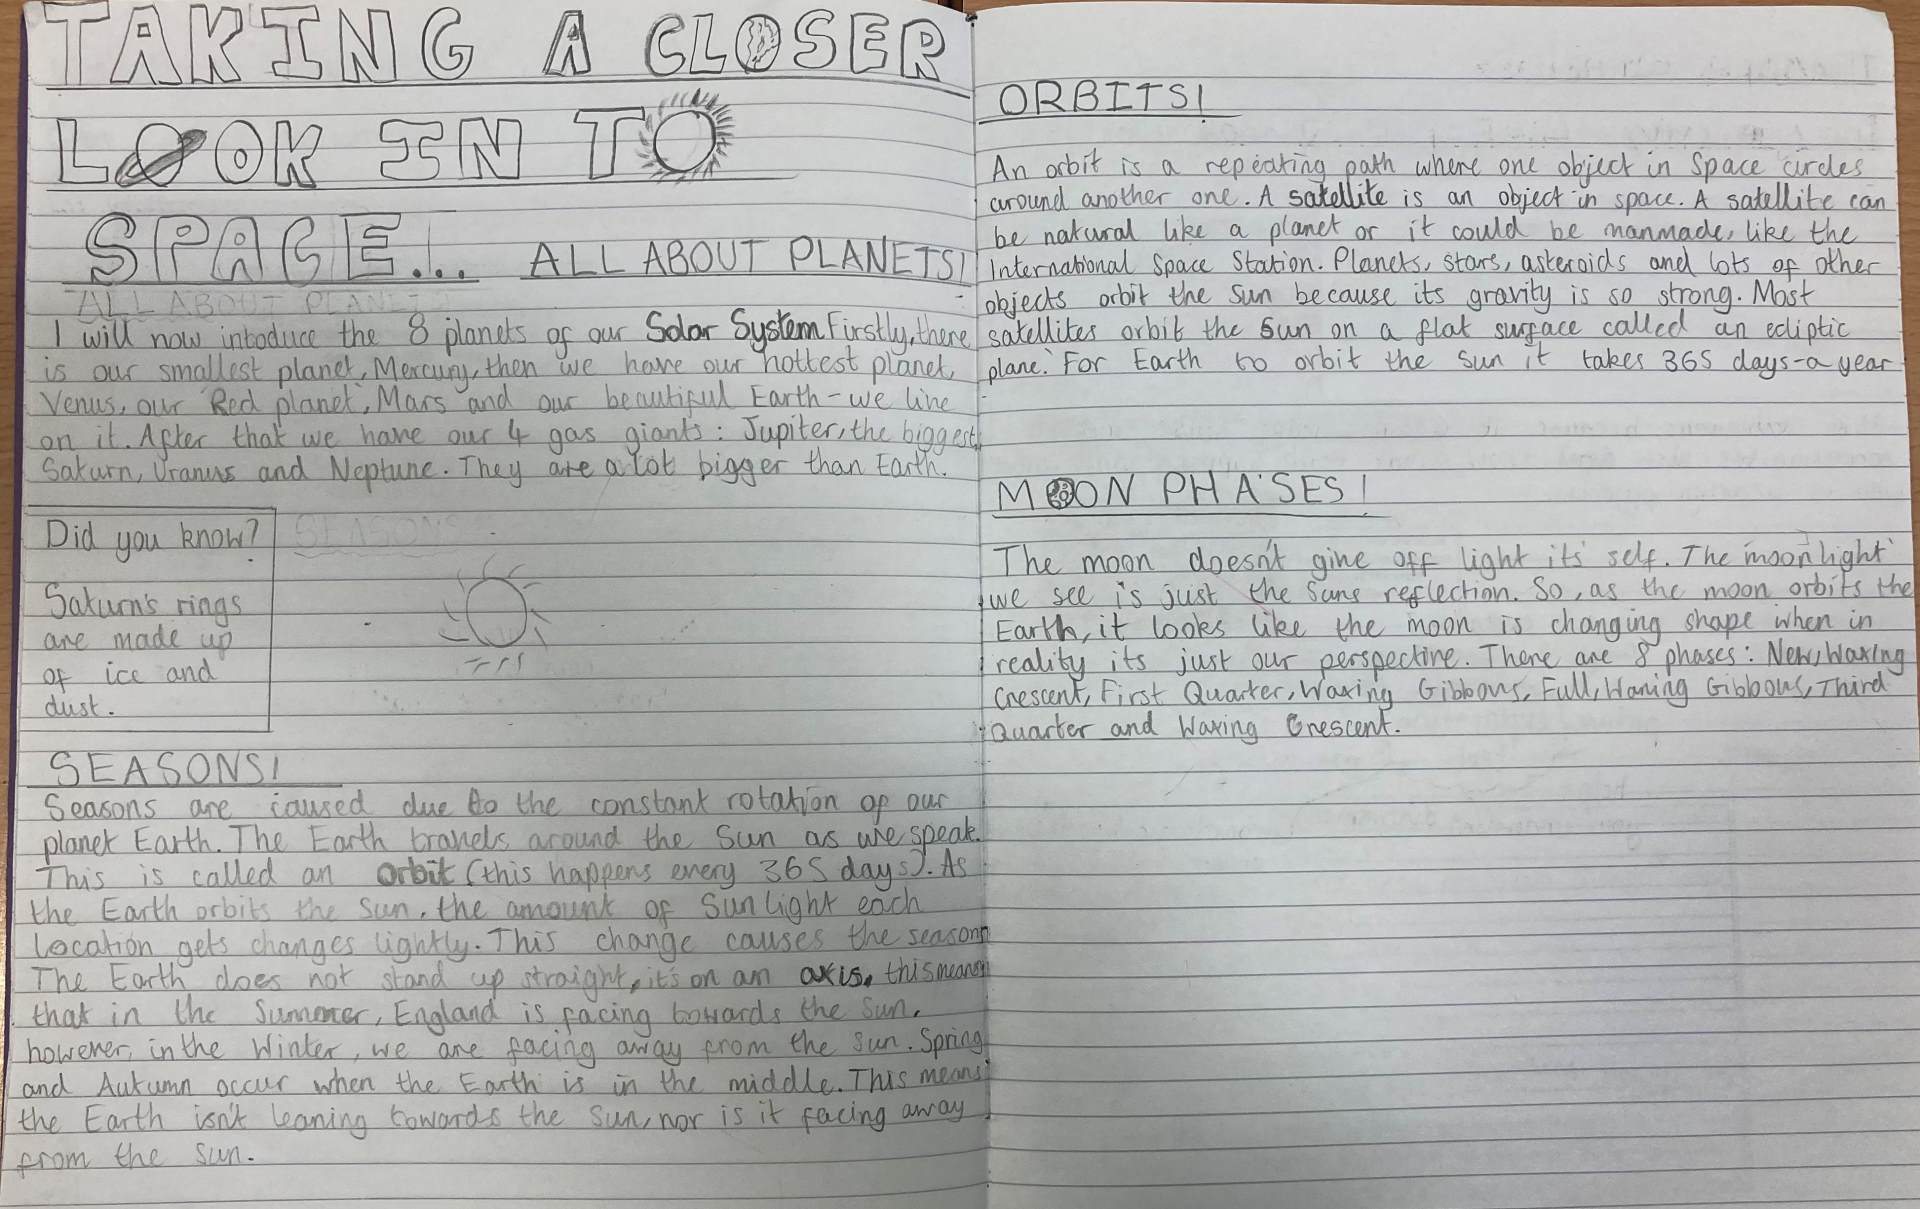 TAKING A CLOSER
LOOK IN TO
SPACE...
ALL ABOUT PLANETS!
ALL ABOUT PLANET
I will now intoduce the 8 planets of our Solar System. Firstly, there
is our smallest planet, Mercury, then we have our hottest planet,
Venus, our 'Red planet', Mars and our beautiful Earth - we live
on it. After that we have our 4 gas giants: Jupiter, the biggest,
Saturn, Uranus and Neptune. They are a lot bigger than Earth.
Did you know?
Saturn's rings
are made up
of ice and
dust.
SEASONS
SEASONS!
Seasons are caused due to the constant rotation of our
planet Earth. The Earth travels around the Sun as we speak.
This is called an orbit (this happens every 365 days). As
the Earth orbits the Sun, the amount of Sun light each
location gets changes lightly. This change causes the seasons
The Earth does not stand up straight, it's on an axis, this means
that in the Summer, England is facing towards the Sun,
however, in the Winter, we are facing away from the Sun. Spring
and Autumn occur when the Earth is in the middle. This means
the Earth isn't leaning towards the Sun, nor is it facing away
from the Sun.
ORBITS!
An orbit is a repeating path where one object in Space circles
around another one. A satellite is an object in space. A satellite can
be natural like a planet or it could be manmade, like the
International Space Station. Planets, stars, asteroids and lots of other
objects orbit the Sun because its gravity is so strong. Most
satellites orbit the Sun on a flat surface called an ecliptic
plane. For Earth to orbit the Sun it takes 365 days - a year
MOON PHASES!
The moon doesn't give off light its self. The 'moonlight'
we see is just the Suns reflection. So, as the moon orbits the
Earth, it looks like the moon is changing shape when in
reality its just our perspective. There are 8 phases: New, Waxing
Crescent, First Quarter, Waxing Gibbous, Full, Waning Gibbous, Third
Quarter and Waxing Crescent.